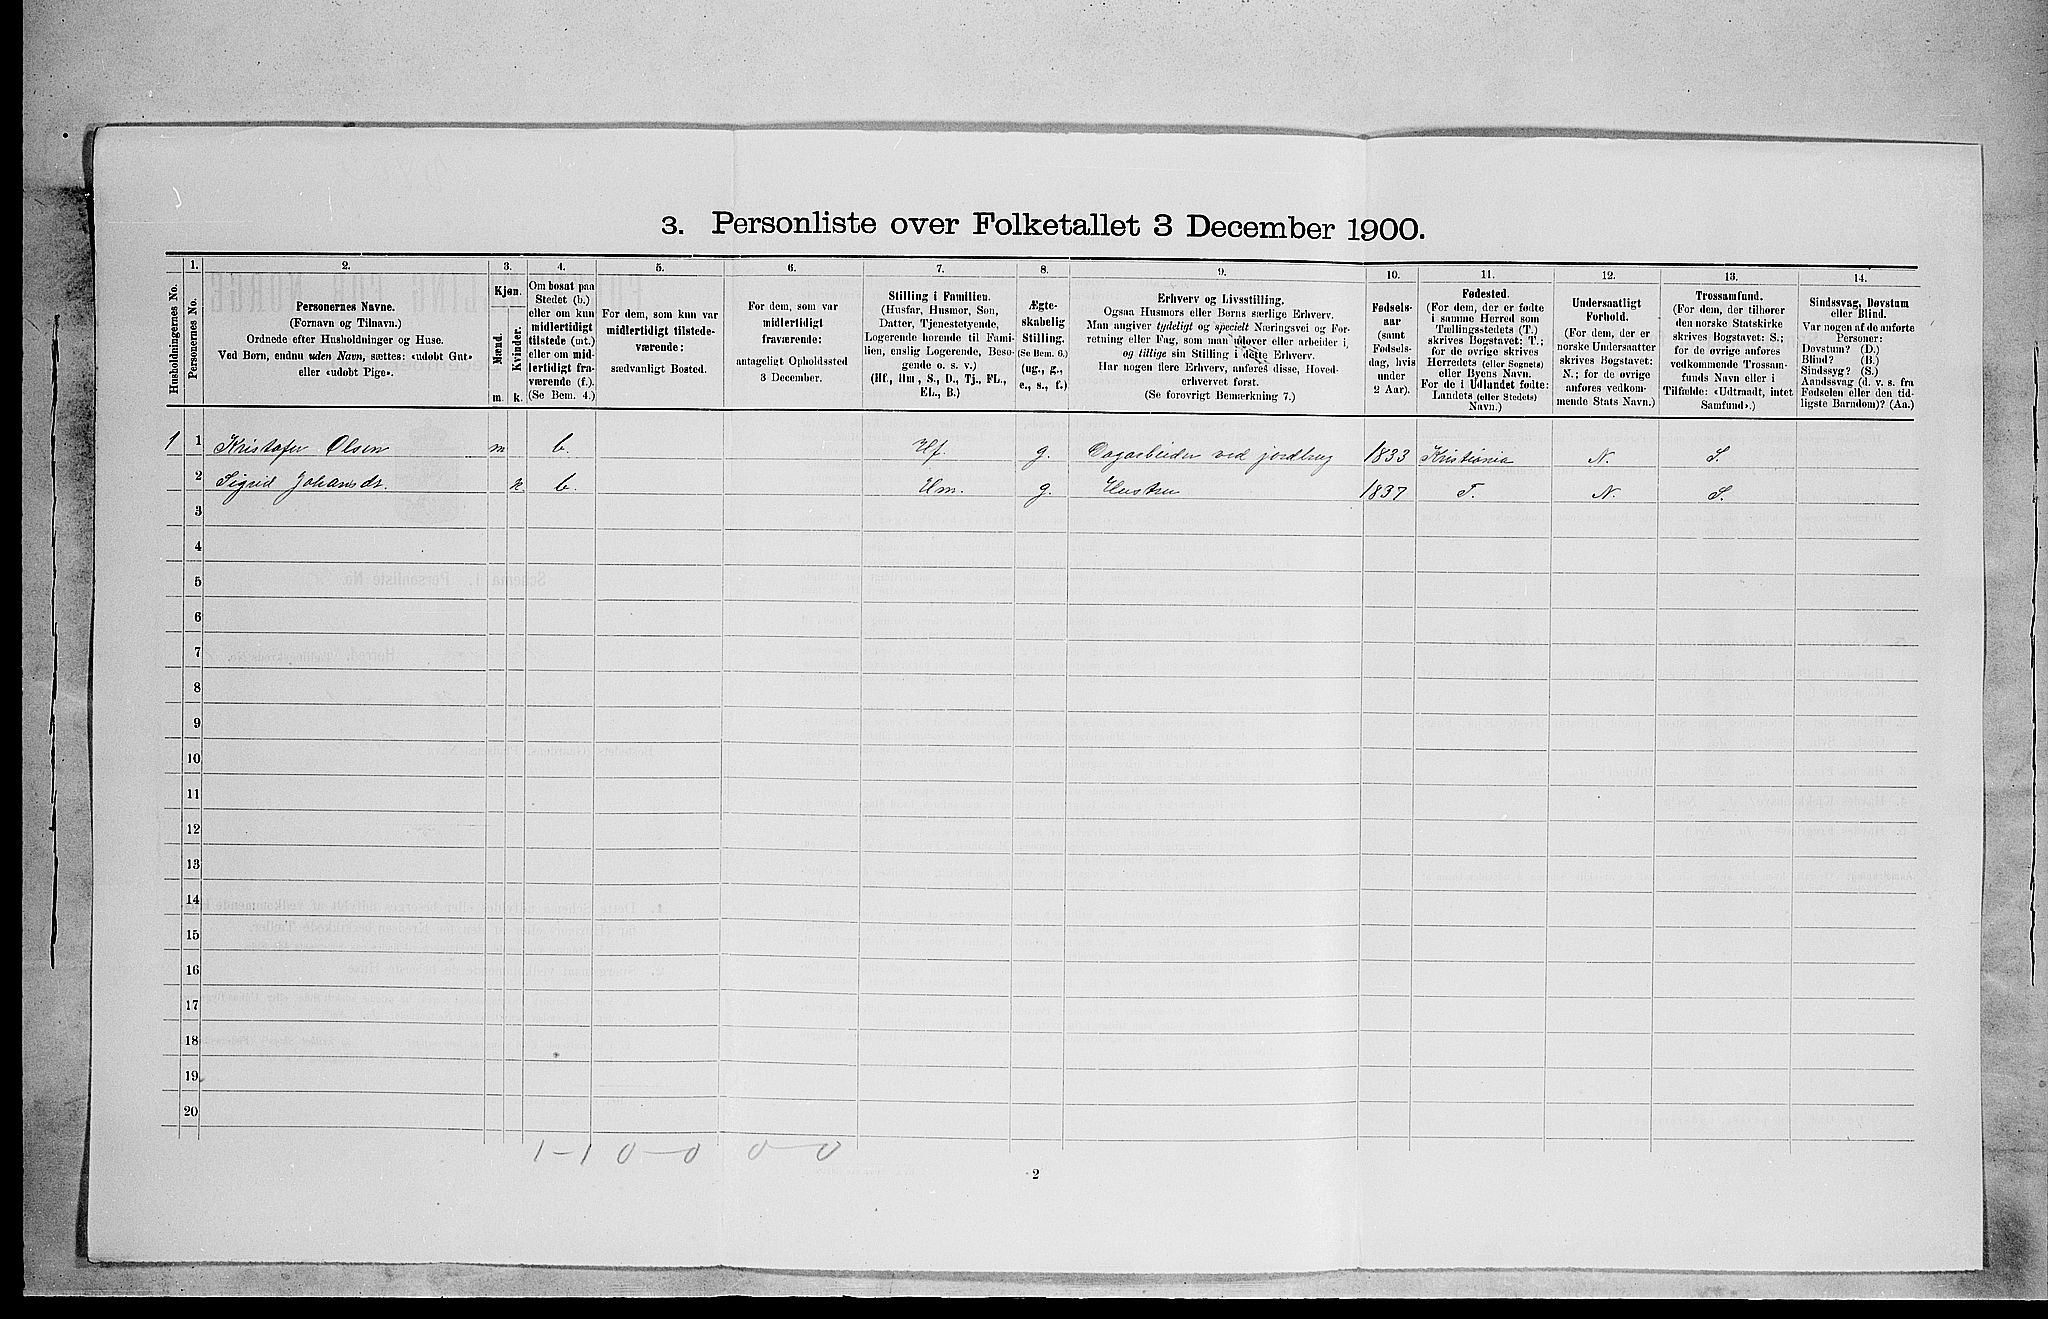 3. Personliste over Folketallet 3 December 1900.
Husholdningernes No.
1.
Personernes No.
2.
Personernes Navne.
(Fornavn og Tilnavn.)
Ordnede efter Husholdninger og Huse.
Ved Børn, endnu uden Navn, sættes: «udøbt Gut»
eller «udøbt Pige».
3.
Kjøn.
Mænd.
Kvinder.
m.
k.
4.
Om bosat paa
Stedet (b.)
eller om kun
midlertidigt
tilstede (mt.)
eller om mid-
lertidigt fra-
værende (f.).
(Se Bem. 4.)
5.
For dem, som kun var
midlertidigt tilstede-
værende:
sædvanligt Bosted.
6.
For dem, som var
midlertidigt
fraværende:
antageligt Opholdssted
3 December.
7.
Stilling i Familien.
(Husfar, Husmor, Søn,
Datter, Tjenestetyende,
Logerende hørende til Fami-
lien, enslig Logerende, Besø-
gende o. s. v.)
(Hf., Hm., S., D., Tj., FL.,
EL., B.)
8.
Ægte-
skabelig
Stilling.
(Se Bem. 6.)
(ug., g.,
e., s., f.)
9.
Erhverv og Livsstilling.
Ogsaa Husmors eller Børns særlige Erhverv.
Man angiver tydeligt og specielt Næringsvei og For-
retning eller Fag, som man udøver eller arbeider i,
og tillige sin Stilling i dette Erhverv.
Har nogen flere Erhverv, anføres disse, Hoved-
erhvervet først.
(Se forøvrigt Bemærkning 7.)
10.
Fødsels-
aar
(samt
Fødsels-
dag, hvis
under
2 Aar).
11.
Fødested.
(For dem, der er fødte
i samme Herred som
Tællingsstedets (T.)
skrives Bogstavet: T.;
for de øvrige skrives
Herredets (eller Sognets)
eller Byens Navn.
For de i Udlandet fødte:
Landets (eller Stedets)
Navn.)
12.
Undersaatligt
Forhold.
(For dem, der er
norske Undersaatter
skrives Bogstavet:
N.; for de øvrige
anføres vedkom-
mende Stats Navn.)
13.
Trossamfund.
(For dem, der tilhører
den norske Statskirke
skrives Bogstavet: S.;
for de øvrige anføres
vedkommende Trossam-
funds Navn eller i
Tilfælde: «Udtraadt, intet
Samfund».)
14.
Sindssvag, Døvstum
eller Blind.
Var nogen af de anførte
Personer:
Døvstum? (D.)
Blind? (B.)
Sindssyg? (S.)
Aandssvag (d. v. s. fra
Fødselen eller den tid-
ligste Barndom)? (Aa.)
1 1 Kristofer Olsen m b. Hf. g. Dagarbeider ved jordbrug 1833 Kristiania N. S.
2 Sigrid Johansdt. k b. Hm. g. Hustru 1837 T. N. S.
3
4
5
6
7
8
9
10
11
12
13
14
15
16
17
18
19
20
1-1 0-0 0-0
2